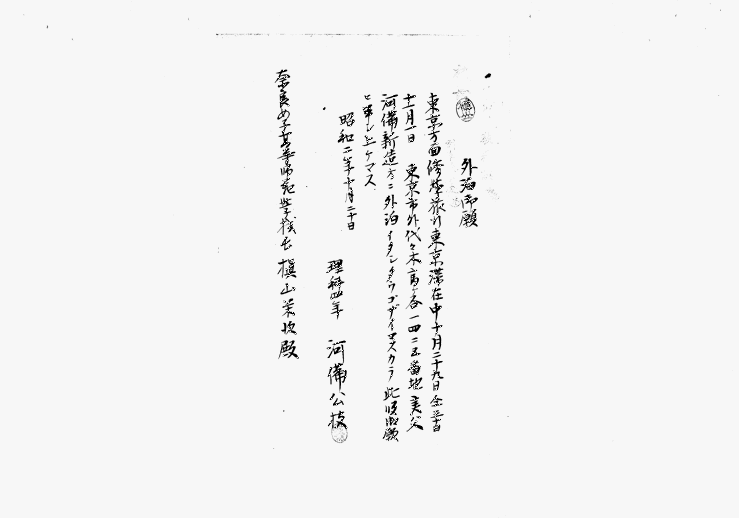 外泊御願
東京方面修学旅行東京滞在中十月二十九日仝三十日
十一月一日 東京市外代々木富ヶ谷一四二五番地実父
河備新造方ニ外泊イタシタウゴザイマスカラ此段御願
ヒ申シ上ゲマス
昭和二年十月二十日
理科四年 河備公枝
奈良女子高等師範学校長 槇山栄次殿